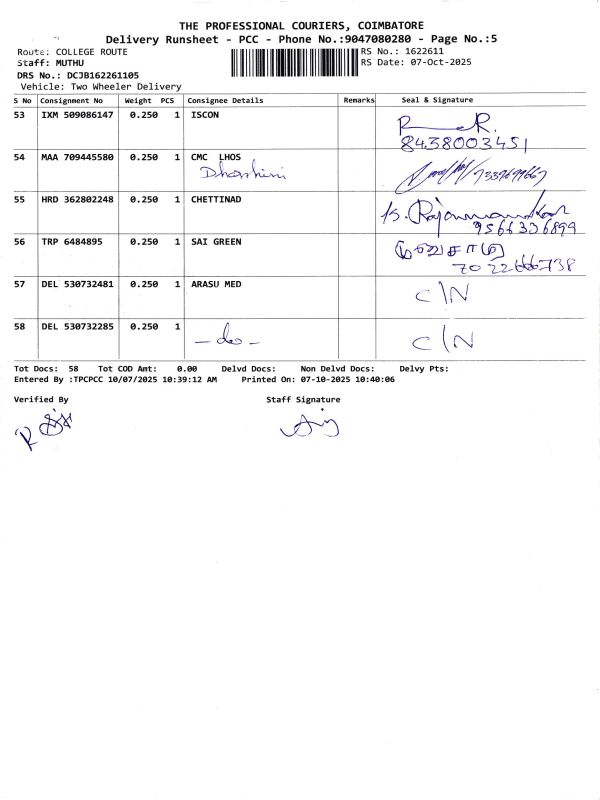 THE PROFESSIONAL COURIERS, COIMBATORE
Delivery Runsheet - PCC - Phone No.:9047080280 - Page No.:5
Route: COLLEGE ROUTE
RS No.: 1622611
Staff: MUTHU
RS Date: 07-Oct-2025
DRS No.: DCJB162261105
Vehicle: Two Wheeler Delivery
S No Consignment No Weight PCS Consignee Details Remarks Seal & Signature
53 IXM 509086147 0.250 1 ISCON
8438003451
54 MAA 709445580 0.250 1 CMC LHOS
Dharshini
55 HRD 362802248 0.250 1 CHETTINAD
9566336899
56 TRP 6484895 0.250 1 SAI GREEN
57 DEL 530732481 0.250 1 ARASU MED C/N
58 DEL 530732285 0.250 1 -do- C/N
Tot Docs: 58 Tot COD Amt: 0.00 Delvd Docs: Non Delvd Docs: Delvy Pts:
Entered By :TPCPCC 10/07/2025 10:39:12 AM Printed On: 07-10-2025 10:40:06
Verified By Staff Signature